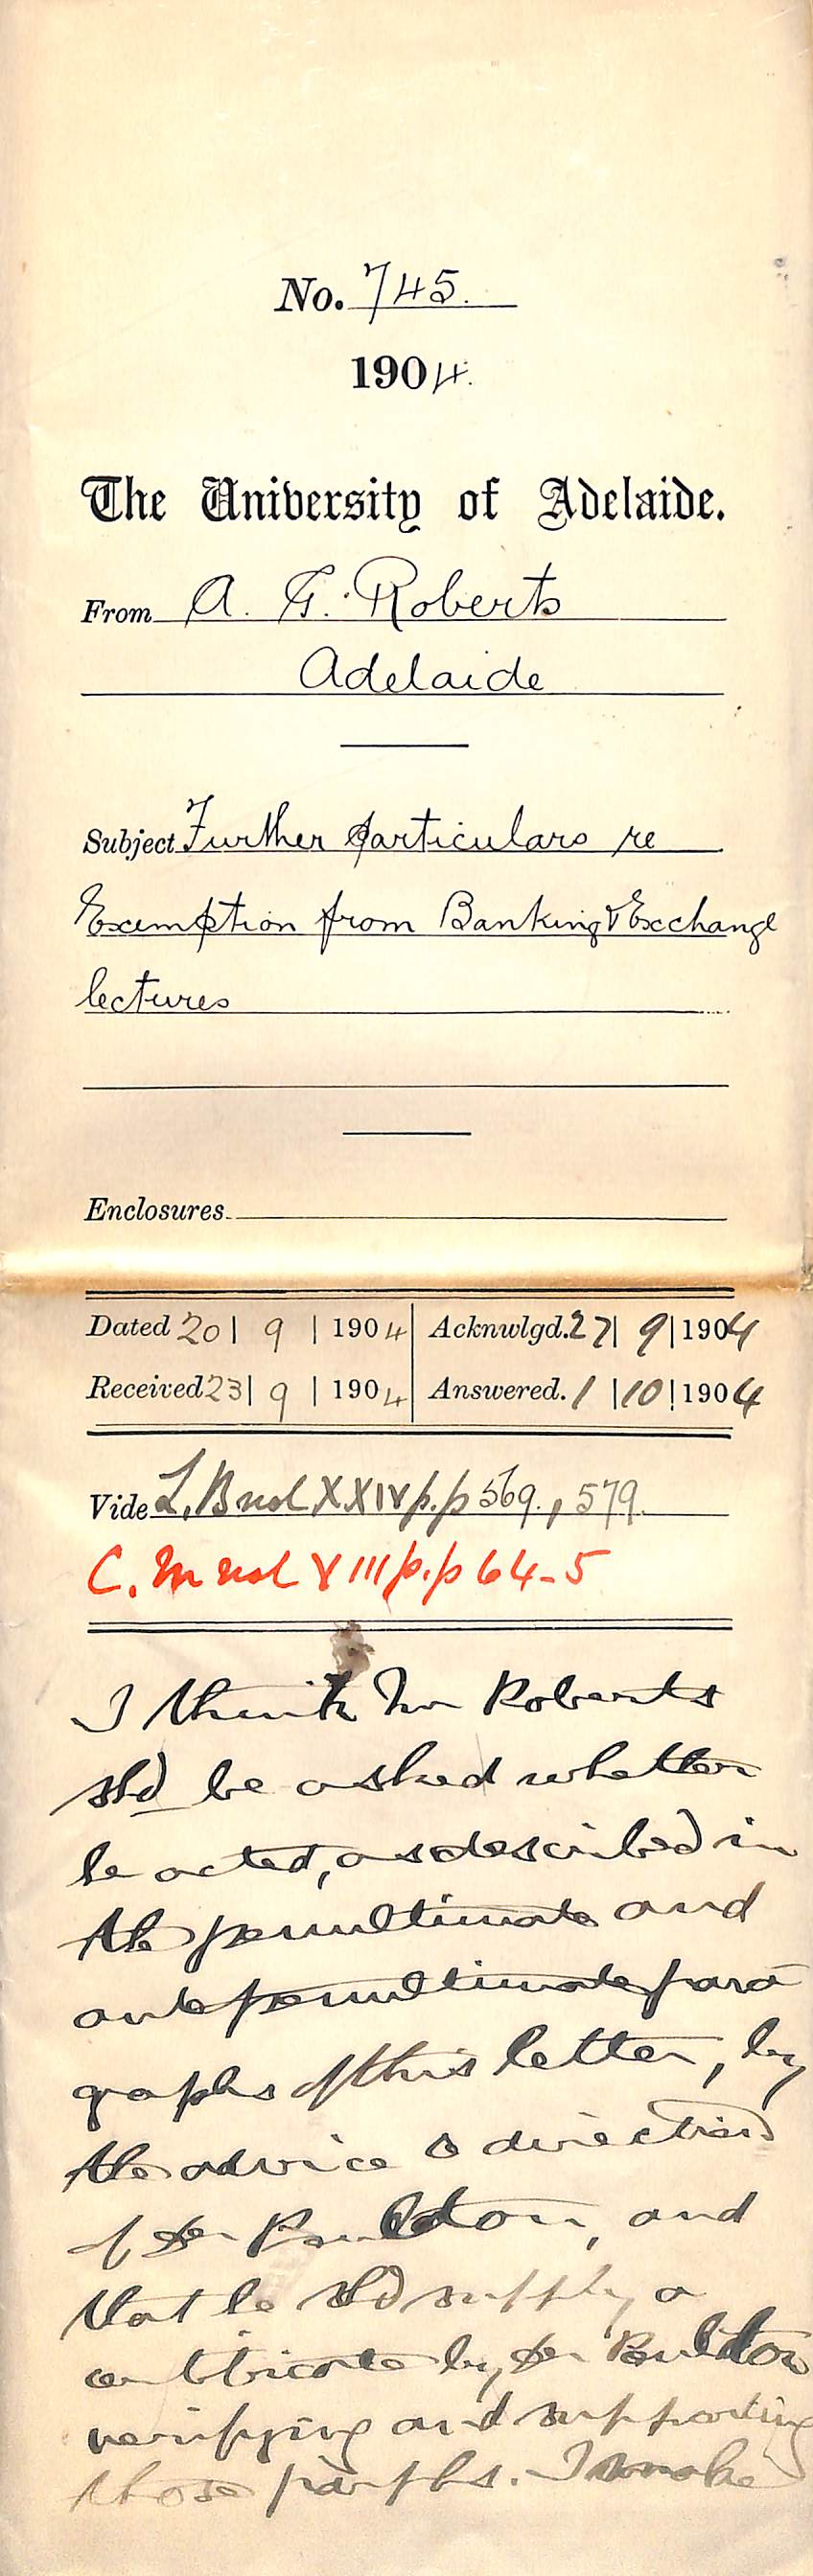 No. 745.
1904.
The University of Adelaide.
From A. G. Roberts
Adelaide
Subject Further particulars re
Exemption from Banking & Exchange
lectures
Enclosures
Dated 20 | 9 | 1904 Acknwlgd. 27 | 9 | 1904
Received 23 | 9 | 1904 Answered. 1 | 10 | 1904
Vide L.B vol XXIV p.p 569., 579.
C.M vol VIII p.p 64-5
I think Mr Roberts
shd be asked whether
he acted, as described in
the penultimate and
antepenultimate para
graphs of this letter, by
the advice & direction
of Dr Poulton, and
that he shd supply a
certificate by Dr Poulton
verifying and supporting
those parphs. I make